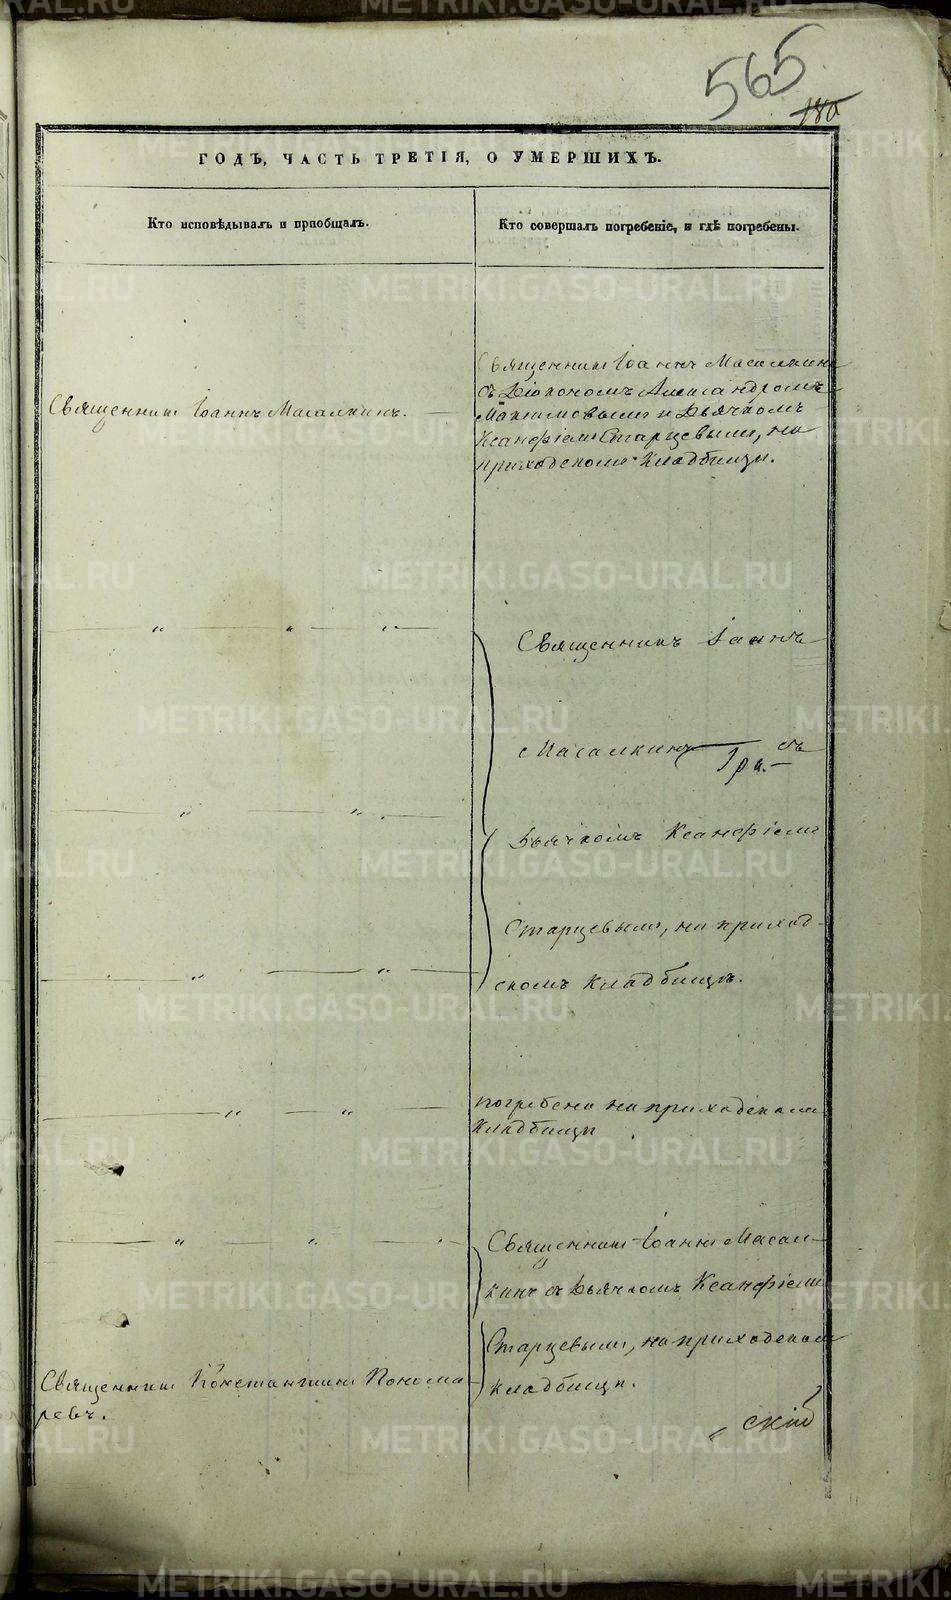 565
180
ГОДЪ, ЧАСТЬ ТРЕТІЯ, О УМЕРШИХЪ.
Кто исповѣдывалъ и пріобщалъ.
Кто совершалъ погребеніе, и гдѣ погребены.
Священникъ Іоаннъ Масалкинъ.
Священникъ Іоаннъ Масалкинъ
съ Діакономъ Александромъ
Максимовымъ и Дьячкомъ
Ксанфіемъ Старцевымъ, на
приходскомъ кладбищѣ.
Священникъ Іоаннъ
Масалкинъ съ
Дьячкомъ Ксанфіемъ
Старцевымъ, на приход-
скомъ кладбищѣ.
погребена на приходскомъ
кладбищѣ
Священникъ Іоаннъ Масал-
кинъ съ Дьячкомъ Ксанфіемъ
Старцевымъ, на приходскомъ
кладбищѣ.
Священникъ Константинъ Понома-
ревъ.
скій
METRIKI.GASO-URAL.RU